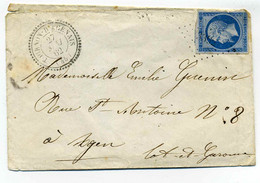 Mademoiselle Emilie Guenin
Rue St. Antoine N.º 8
à Agen
Lot-et-Garonne